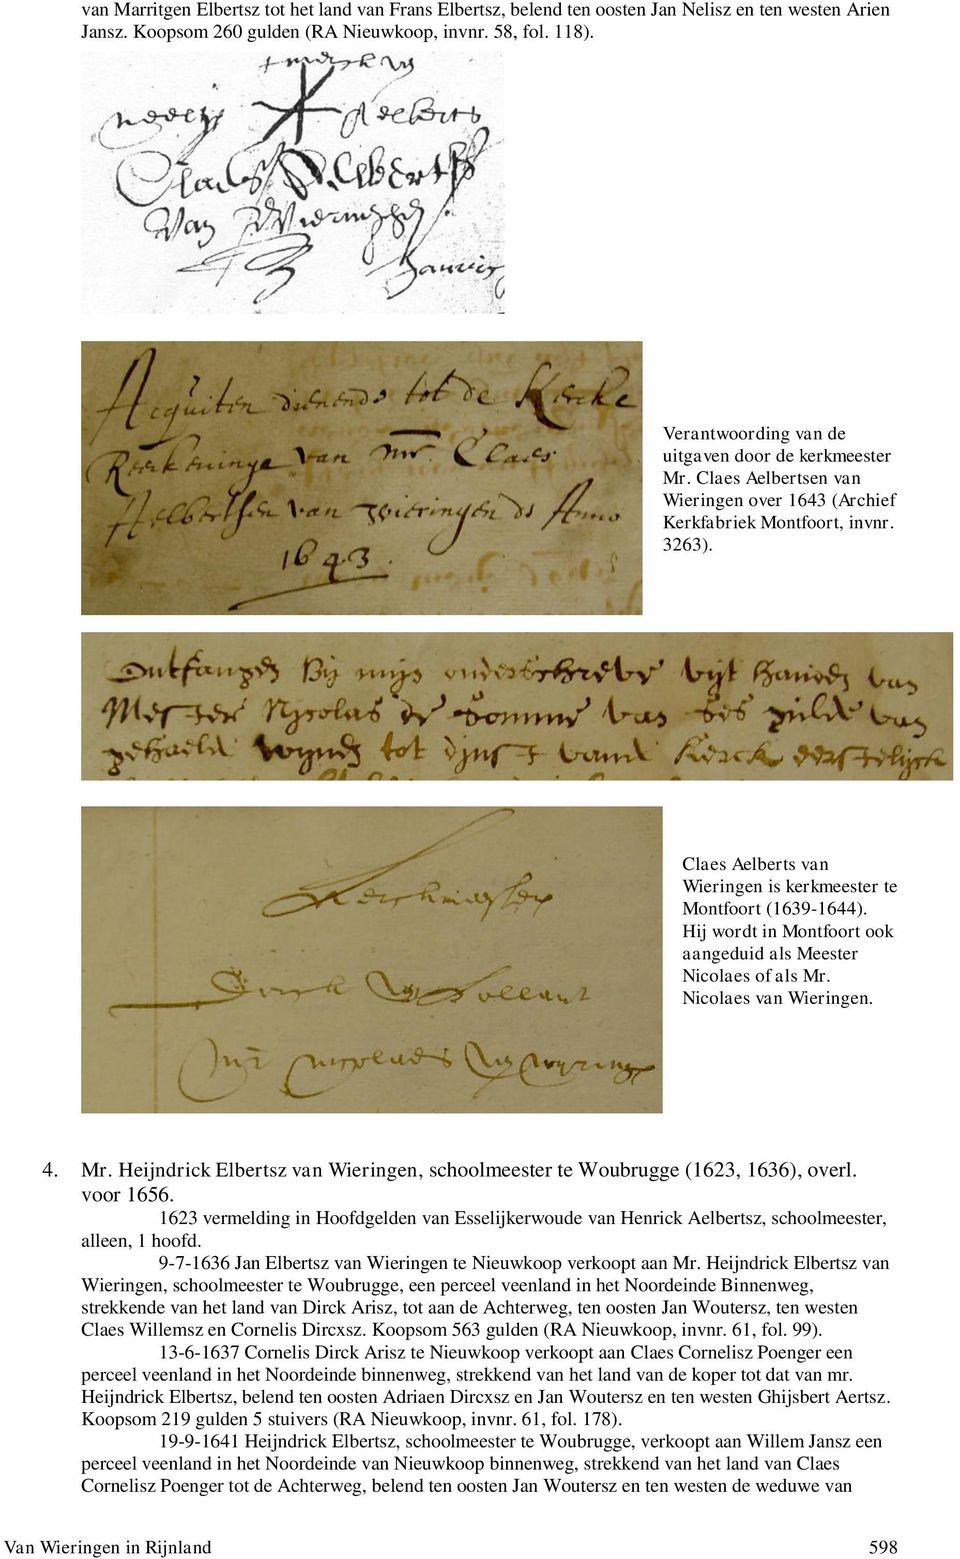 van Marritgen Elbertsz tot het land van Frans Elbertsz, belend ten oosten Jan Nelisz en ten westen Arien
Jansz. Koopsom 260 gulden (RA Nieuwkoop, invnr. 58, fol. 118).
neeltij Aelberts
Claes Aelbertss
Van Wieringhen
Acquiten dienende tot de Kercke
Reeckeninge van mr. Claes
Aelbertsen van wieringen de Anno
1643.
Verantwoording van de
uitgaven door de kerkmeester
Mr. Claes Aelbertsen van
Wieringen over 1643 (Archief
Kerkfabriek Montfoort, invnr.
3263).
Ontfangen Bij mijn onderschreve uijt handen van
Mester Nycolas de Somme van ses gulde van
gehaelde wynen tot dinst vande Kerck eerstelijck
Kerckmeesters
Dirck Vollant
Mr nicolaes van wyringen
Claes Aelberts van
Wieringen is kerkmeester te
Montfoort (1639-1644).
Hij wordt in Montfoort ook
aangeduid als Meester
Nicolaes of als Mr.
Nicolaes van Wieringen.
4. Mr. Heijndrick Elbertsz van Wieringen, schoolmeester te Woubrugge (1623, 1636), overl.
voor 1656.
1623 vermelding in Hoofdgelden van Esselijkerwoude van Henrick Aelbertsz, schoolmeester,
alleen, 1 hoofd.
9-7-1636 Jan Elbertsz van Wieringen te Nieuwkoop verkoopt aan Mr. Heijndrick Elbertsz van
Wieringen, schoolmeester te Woubrugge, een perceel veenland in het Noordeinde Binnenweg,
strekkende van het land van Dirck Arisz, tot aan de Achterweg, ten oosten Jan Woutersz, ten westen
Claes Willemsz en Cornelis Dircxsz. Koopsom 563 gulden (RA Nieuwkoop, invnr. 61, fol. 99).
13-6-1637 Cornelis Dirck Arisz te Nieuwkoop verkoopt aan Claes Cornelisz Poenger een
perceel veenland in het Noordeinde binnenweg, strekkend van het land van de koper tot dat van mr.
Heijndrick Elbertsz, belend ten oosten Adriaen Dircxsz en Jan Woutersz en ten westen Ghijsbert Aertsz.
Koopsom 219 gulden 5 stuivers (RA Nieuwkoop, invnr. 61, fol. 178).
19-9-1641 Heijndrick Elbertsz, schoolmeester te Woubrugge, verkoopt aan Willem Jansz een
perceel veenland in het Noordeinde van Nieuwkoop binnenweg, strekkend van het land van Claes
Cornelisz Poenger tot de Achterweg, belend ten oosten Jan Woutersz en ten westen de weduwe van
Van Wieringen in Rijnland 598